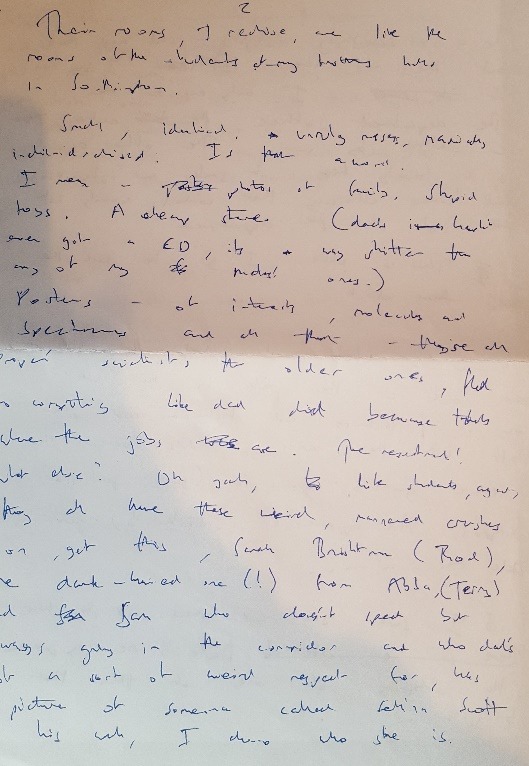 2
Their rooms, I realise, are like the
rooms of the students of my
in Southampton.
Small, identical. messy,
individualised. Is that a word.
I mean - photos of family, stupid
toys. A cheap stereo (dad's hasn't
even got a CD, its way shitter than
any of my ones.)
Posters - of interests, molecules and
spectrums and all that - they're all
scientists, the older ones, fled
to computing like dad did because thats
where the jobs are.
what else? Oh yeah, like students, again,
they all have these weird, crushes
on, get this, Sarah Brightman (Rod),
the dark-haired one (!) from Abba, (Terry)
and Jan who doesn't speak but
always in the corridor and who dad's
got a sort of weird respect for, has
picture of someone called Selina Scott
his wall, I dunno who she is.